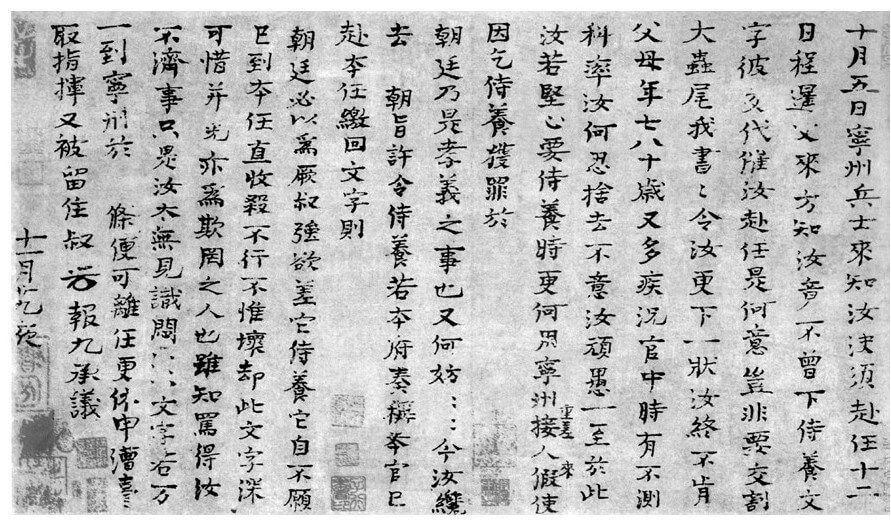 十月五日寧州兵士來知汝決須赴任十二
日程暹父來方知汝竟不曾下侍養文
字彼交代催汝赴任是何意豈非要交割
大蟲尾我書〻令汝更下一狀汝終不肯
父母年七八十歲又多疾況官中時有不測
科率汝何忍捨去不意汝頑愚一至於此
汝若堅心要侍養時更何用寧州接人重差來假使
因乞侍養獲罪於
朝廷乃是孝義之事也又何妨〻〻今汝纔
去 朝旨許令侍養若本府奏稱本官已
赴本任繳回文字則
朝廷必以為厥叔強欲差它侍養它自不願
已到本任直收殺不行不惟壞却此文字深
可惜并光亦為欺罔之人也雖知罵得汝
不濟事只是汝太無見識 文字若万
一到寧州於 條便可離任更休申漕臺
取指揮又被留住叔 光 報九承議
十一月廿九發